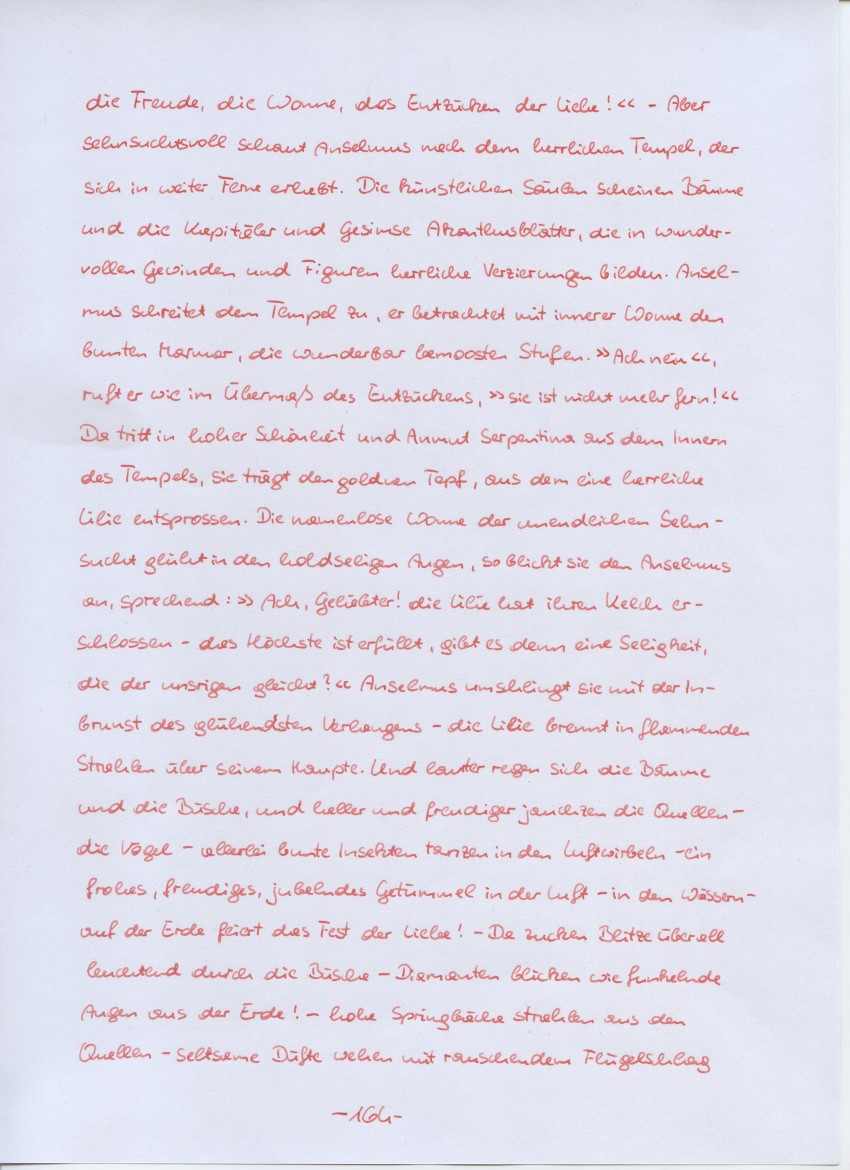 die Freude, die Wonne, das Entzücken der Liebe!« – Aber
sehnsuchtsvoll schaut Anselmus nach dem herrlichen Tempel, der
sich in weiter Ferne erhebt. Die künstlichen Säulen scheinen Bäume
und die Kapitäler und Gesimse Akanthusblätter, die in wunder-
vollen Gewinden und Figuren herrliche Verzierungen bilden. Ansel-
mus schreitet dem Tempel zu, er betrachtet mit innerer Wonne den
bunten Marmor, die wunderbar bemoosten Stufen. »Ach nein«,
ruft er wie im Übermaß des Entzückens, »sie ist nicht mehr fern!«
Da tritt in hoher Schönheit und Anmut Serpentina aus dem Innern
des Tempels, sie trägt den goldnen Topf, aus dem eine herrliche
Lilie entsprossen. Die namenlose Wonne der unendlichen Sehn-
sucht glüht in den holdseligen Augen, so blickt sie den Anselmus
an, sprechend: »Ach, Geliebter! die Lilie hat ihren Kelch er-
schlossen – das Höchste ist erfüllt, gibt es denn eine Seligkeit,
die der unsrigen gleicht?« Anselmus umschlingt sie mit der In-
brunst des glühendsten Verlangens – die Lilie brennt in flammenden
Strahlen über seinem Haupte. Und lauter regen sich die Bäume
und die Büsche, und heller und freudiger jauchzen die Quellen –
die Vögel – allerlei bunte Insekten tanzen in den Luftwirbeln – ein
frohes, freudiges, jubelndes Getümmel in der Luft – in den Wässern –
auf der Erde feiert das Fest der Liebe! – Da zucken Blitze überall
leuchtend durch die Büsche – Diamanten blicken wie funkelnde
Augen aus der Erde! – hohe Springbäche strahlen aus den
Quellen – seltsame Düfte wehen mit rauschendem Flügelschlag
–164–